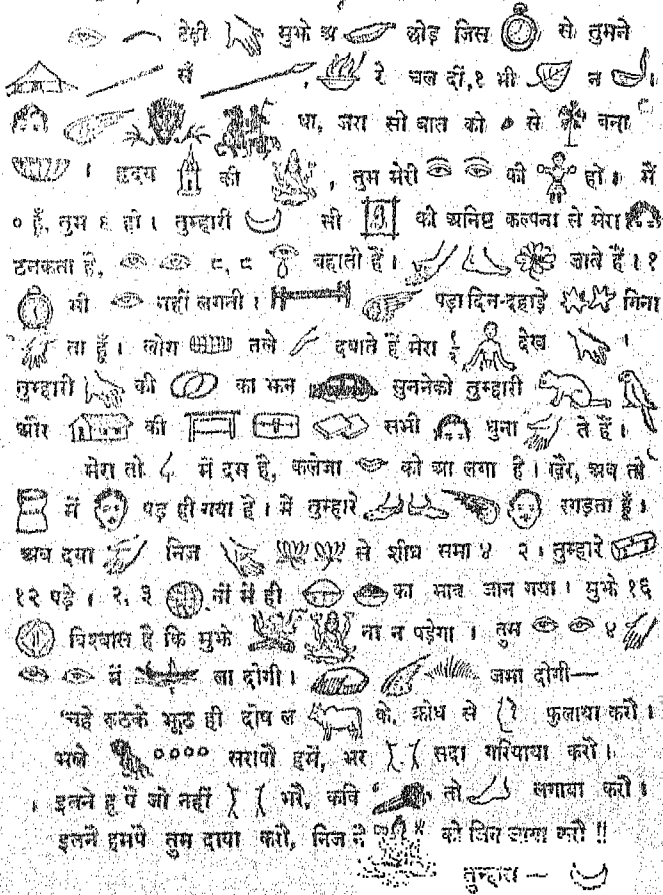 टेढ़ी मुझे अ छोड़ जिस से तुमने
सँ , रे चल दीं, १ भी न ।
था, जरा सी बात को से बना
। हृदय की , तुम मेरी की हो। मैं
० हूँ, तुम ६ हो। तुम्हारी सी की अनिष्ट कल्पना ले मेरा
ठनकता है, ८, ८ बहाती हैं। जाते हैं। १
भी नहीं लगती। पड़ा दिन-दहाड़े गिना
ता हूँ। लोग तले दबाते हैं मेरा १/२ देख ।
तुम्हारी की का झन सुननेको तुम्हारी
और की सभी धुना ते हैं।
मेरा तो में दम है, कलेजा को आ लगा है। खैर, अब तो
में पड़ ही गया है। मैं तुम्हारे रगड़ता हूँ।
अब दया निज से शीघ्र समा ४ २। तुम्हारे
१२ पड़े। २, ३ तों में ही का भाव जान गया। मुझे १६
विश्वास है कि मुझे ना न पड़ेगा। तुम ४
में ला दोगी। जमा दोगी—
चहे रूठके झूठ ही दोष ल के, क्रोध से फुलाया करौ।
भले ०००० सरापौ हमें, भर सदा गरियाया करौ।
। इतने हू पै जो नहीं भरै, कवि तो लगाया करौ।
इतनै हमपै तुम दाया करो, निज नै को जिन जाया करौ !!
तुम्हारा —